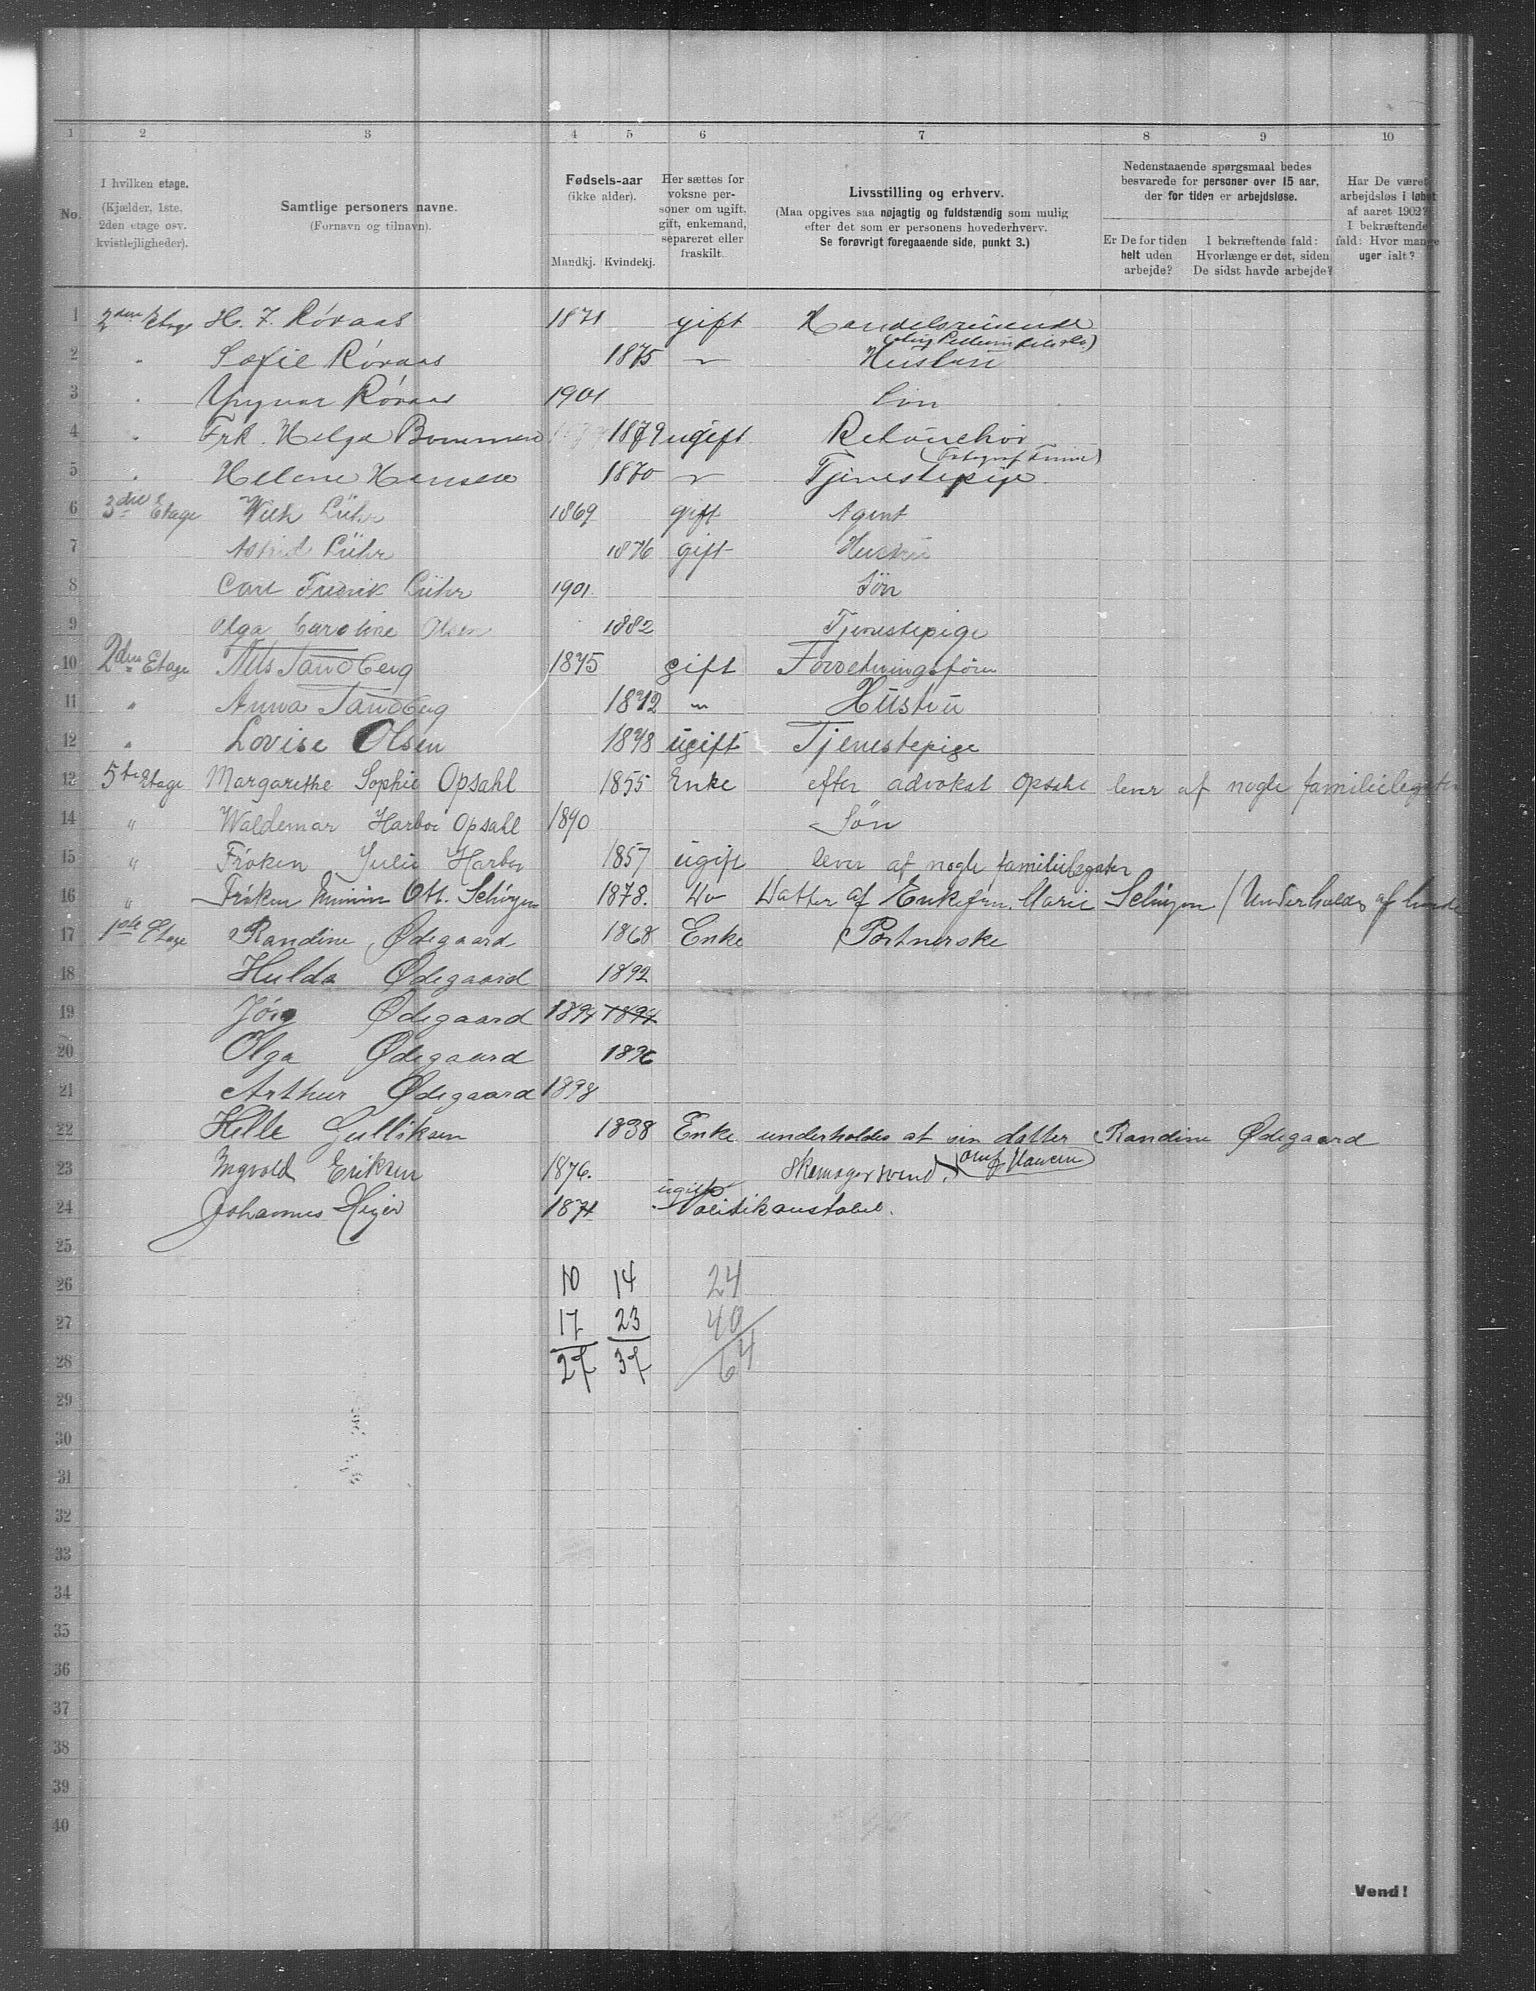 1 2 3 4 5 6 7 8 9 10
No.
I hvilken etage.
(Kjælder, 1ste.
2den etage osv.
kvistlejligheder).
Samtlige personers navne.
(Fornavn og tilnavn).
Fødsels-aar
(ikke alder).
Mandkj. Kvindekj.
Her sættes for
voksne per-
soner om ugift,
gift, enkemand,
separeret eller
fraskilt.
Livsstilling og erhverv.
(Maa opgives saa nøjagtig og fuldstændig som mulig
efter det som er personens hovederhverv.
Se forøvrigt foregaaende side, punkt 3.)
Nedenstaaende spørgsmaal bedes
besvarede for personer over 15 aar,
der for tiden er arbejdsløse.
Er De for tiden
helt uden
arbejde?
I bekræftende fald:
Hvorlænge er det, siden
De sidst havde arbejde?
Har De været
arbejdsløs i løbet
af aaret 1902?
I bekræftende
fald: Hvor mange
uger ialt?
1 2den Etage H. F. Røraas 1871 gift Handelsreisende
2 " Sofie Røraas 1875 " Hustru
3 " Yngvar Røraas 1901 Søn
4 " Frk. Helga Bommen 1879 ugift Retouchør
5 " Helene Hansen 1870 " Tjenestepige
6 3die Etage Wilh Lühr 1869 gift Agent
7 Astrid Lühr 1876 gift Hustru
8 Carl Fredrik Lühr 1901 Søn
9 Olga Caroline Olsen 1882 Tjenestepige
10 2den Etage Nils Sandberg 1875 gift Forretningsfører
11 " Anna Sandberg 1872 " Hustru
12 " Lovise Olsen 1878 ugift Tjenestepige
13 5te Etage Margarethe Sophie Opsahl 1855 Enke efter advokat Opsahl lever af nogle familielegater
14 " Waldemar Harboe Opsahl 1890 Søn
15 " Frøken Julie Harboe 1857 ugift lever af nogle familielegater
16 " Frøken Ott. 1878. Do Datter af Enkefru Marie / Underholdes af hende
17 1ste Etage Randine Ødegaard 1868 Enke Portnerske
18 Hulda Ødegaard 1892
19 Ødegaard 1894 1894
20 Olga Ødegaard 1896
21 Arthur Ødegaard 1898
22 Helle Gulliksen 1838 Enke underholdes af sin datter Randine Ødegaard
23 Ingvold Eriksen 1876. Skomagersvend.
24 Johannes Heyer 1871 ugift Politikonstabel.
25
26 10 14 24
27 17 23 40
28 27 37 64
29
30
31
32
33
34
35
36
37
38
39
40
Vend!